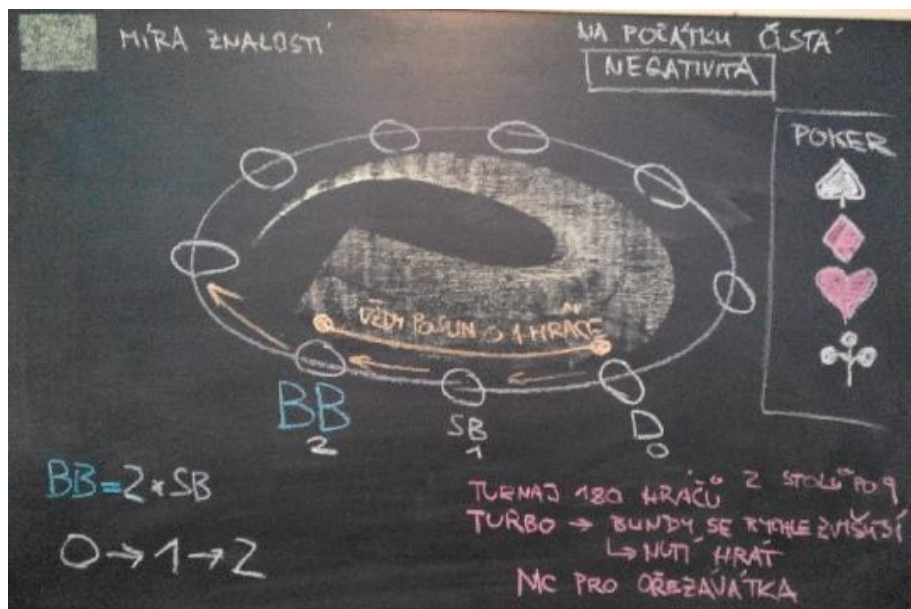 MÍRA ZNALOSTÍ
NA POČÁTKU ČISTÁ
NEGATIVITA
POKER
VŽDY POSUN O 1 HRÁČE
BB
2
SB
1
D
0
BB=2*SB
0→1→2
TURNAJ 180 HRÁČŮ Z STOLŮ PO 9
TURBO → BLINDY SE RYCHLE ZVIŠUJÍ
↳ NUTÍ HRÁT
MC PRO OŘEZÁVÁTKA